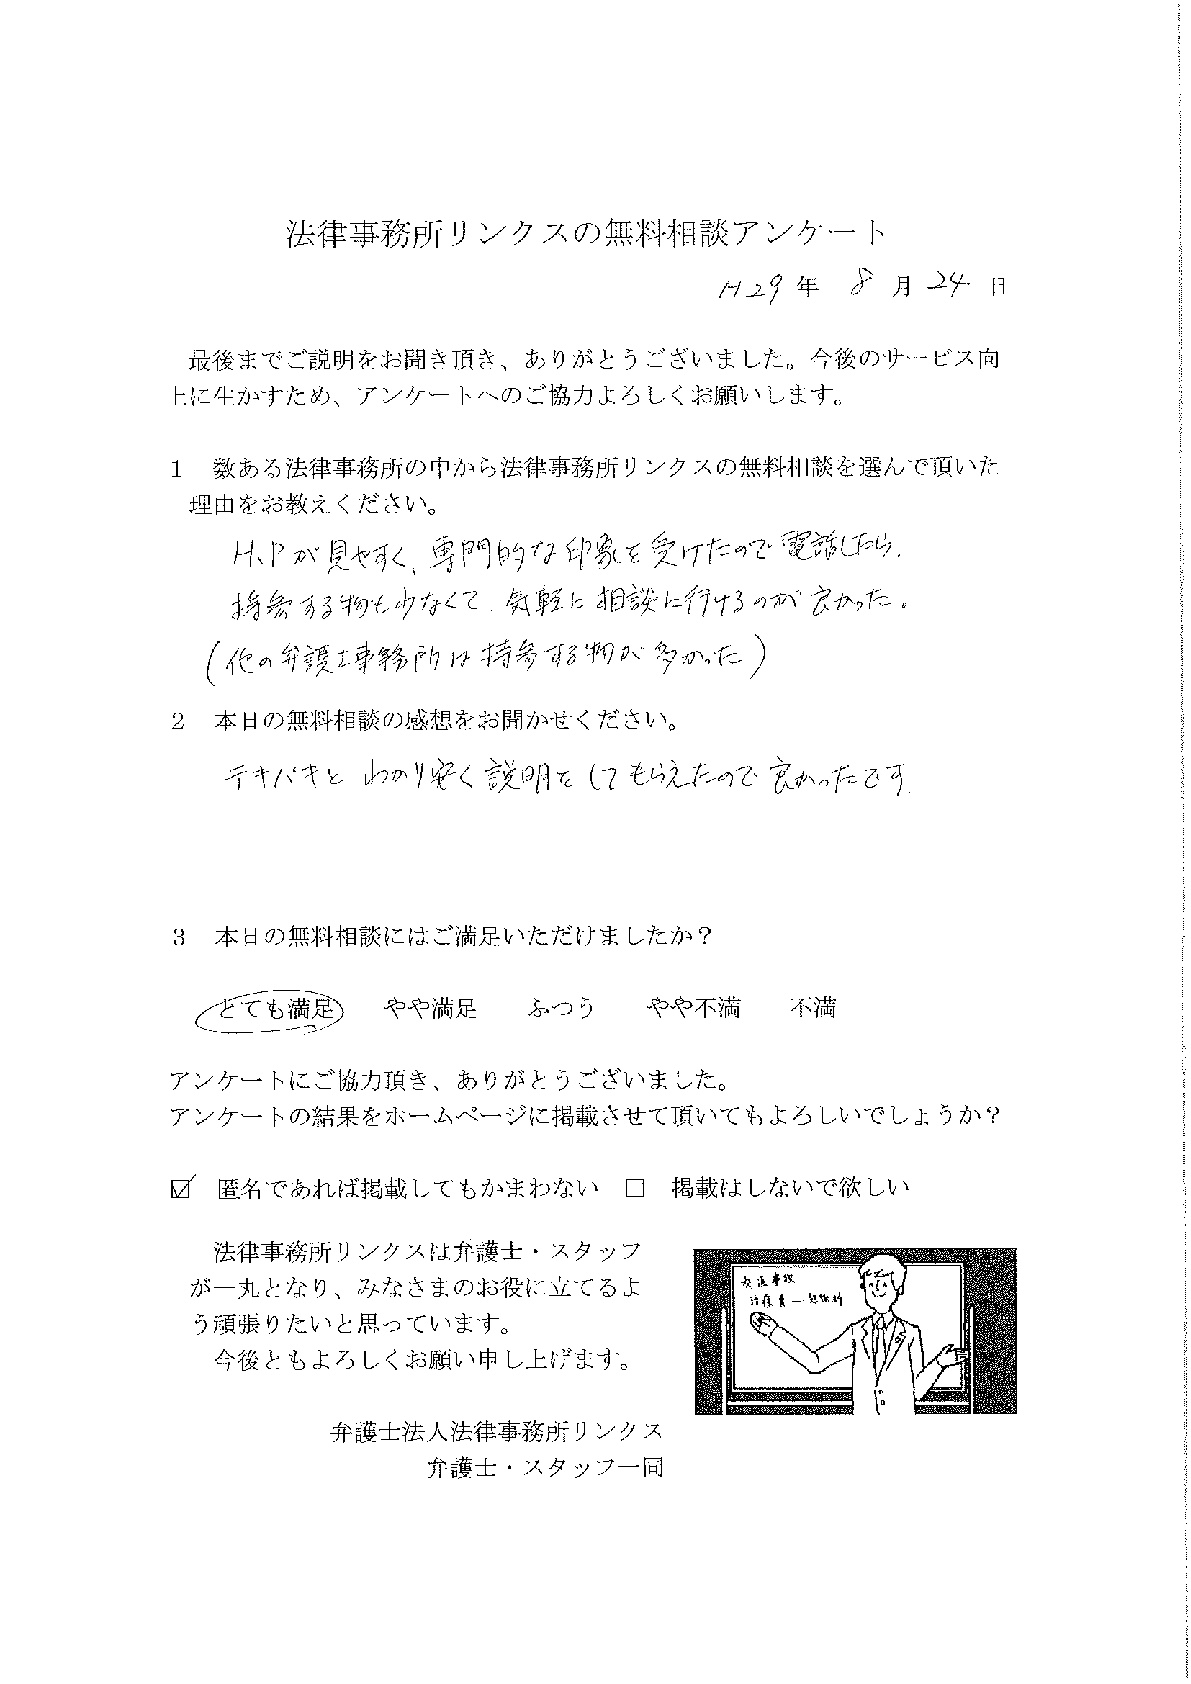 法律事務所リンクスの無料相談アンケート
H29 年 8 月 24 日
最後までご説明をお聞き頂き、ありがとうございました。今後のサービス向
上に生かすため、アンケートへのご協力よろしくお願いします。
1 数ある法律事務所の中から法律事務所リンクスの無料相談を選んで頂いた
理由をお教えください。
H.Pが見やすく、専門的な印象を受けたので電話したら、
持参する物も少なくて、気軽に相談に行けるのが良かった。
(他の弁護士事務所は持参する物が多かった)
2 本日の無料相談の感想をお聞かせください。
テキパキとわかり安く説明をしてもらえたので良かったです
3 本日の無料相談にはご満足いただけましたか?
とても満足 やや満足 ふつう やや不満 不満
アンケートにご協力頂き、ありがとうございました。
アンケートの結果をホームページに掲載させて頂いてもよろしいでしょうか?
☑ 匿名であれば掲載してもかまわない □ 掲載はしないで欲しい
法律事務所リンクスは弁護士・スタッフ
が一丸となり、みなさまのお役に立てるよ
う頑張りたいと思っています。
今後ともよろしくお願い申し上げます。
弁護士法人法律事務所リンクス
弁護士・スタッフ一同
交通事故
治療費